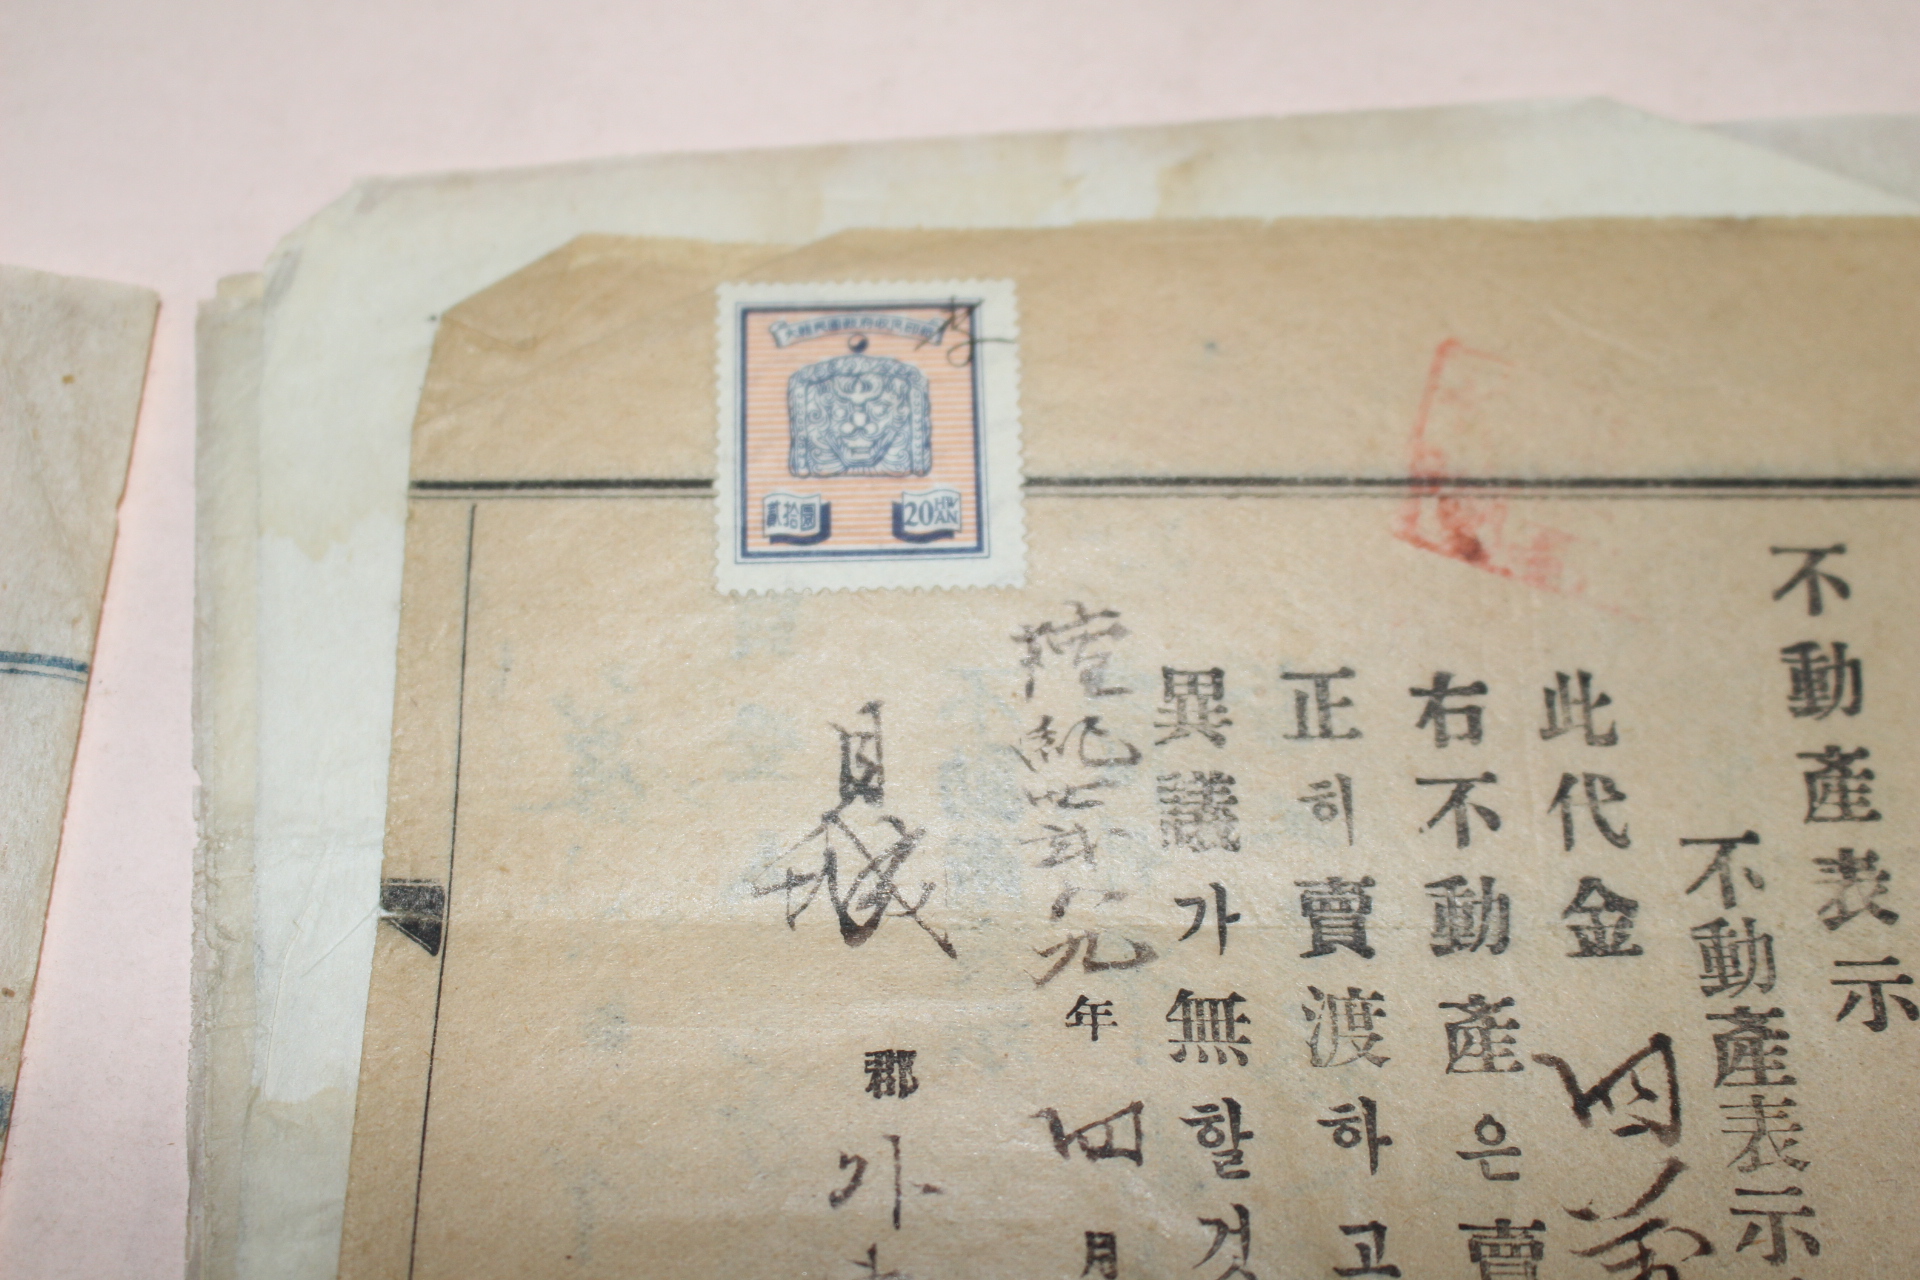 大韓民國政府收入印紙
貳拾圓
20 HWAN
不動產表示
不動產表示
此代金四萬
右不動產은賣
正히賣渡하고
異議가無할것
檀紀四二八九年四月
郡外